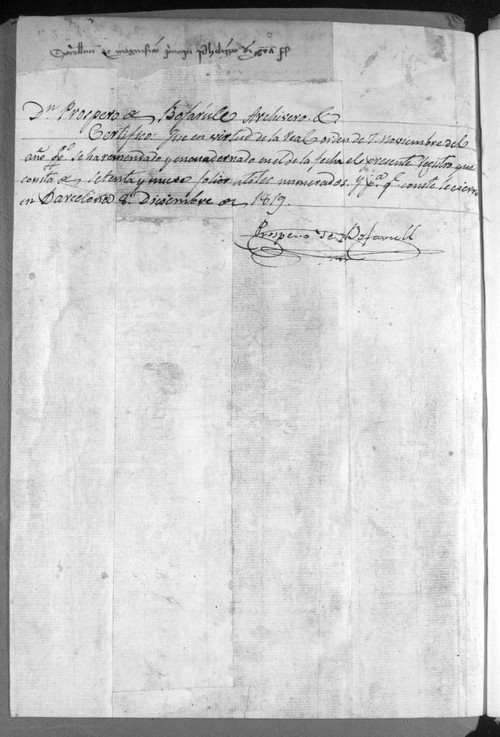 magnifico Philippo
Dn. Prospero de Bofarull Archivero &
Certifico: Que en virtud de la Real orden de 7 Noviembre del
año ppo. se ha remendado y encuadernado en el de la fecha el presente Registro que
consta de setenta y nueve folios utiles numerados. Y pa. q. conste le cierro
en Barcelona 8 Diciembre de 1819.
Prospero de Bofarull